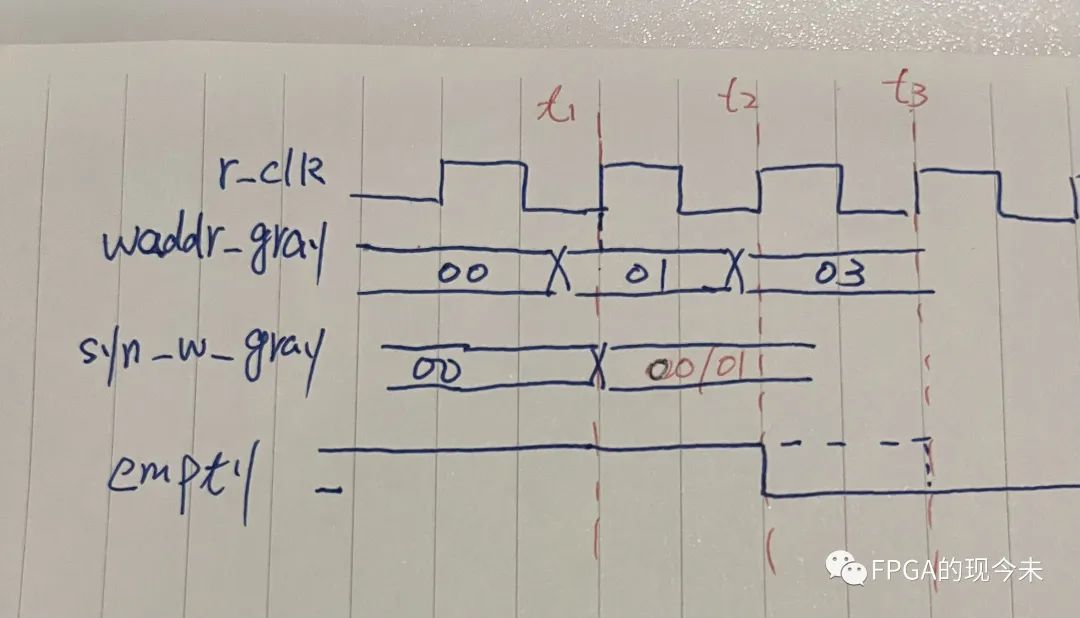 t1 t2 t3
r_clk
waddr_gray 00 01 03
syn_w_gray 00 00/01
empty
FPGA的现今未